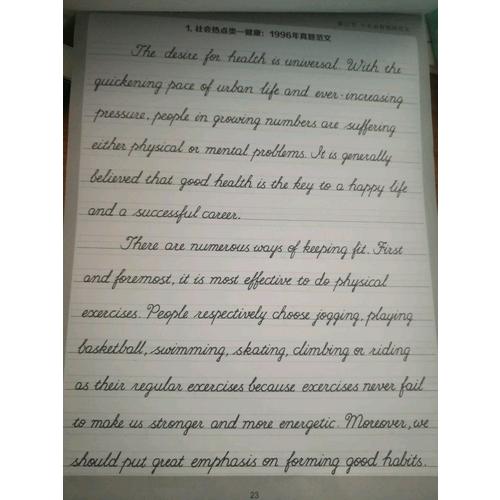 1. 社会热点类—健康：1996年真题范文
The desire for health is universal. With the
quickening pace of urban life and ever-increasing
pressure, people in growing numbers are suffering
either physical or mental problems. It is generally
believed that good health is the key to a happy life
and a successful career.
There are numerous ways of keeping fit. First
and foremost, it is most effective to do physical
exercises. People respectively choose jogging, playing
basketball, swimming, skating, climbing or riding
as their regular exercises because exercises never fail
to make us stronger and more energetic. Moreover, we
should put great emphasis on forming good habits.
23